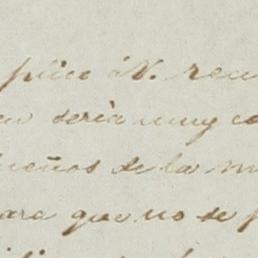 plica á V. rem
seria muy co
ueños de la m
para que no se p